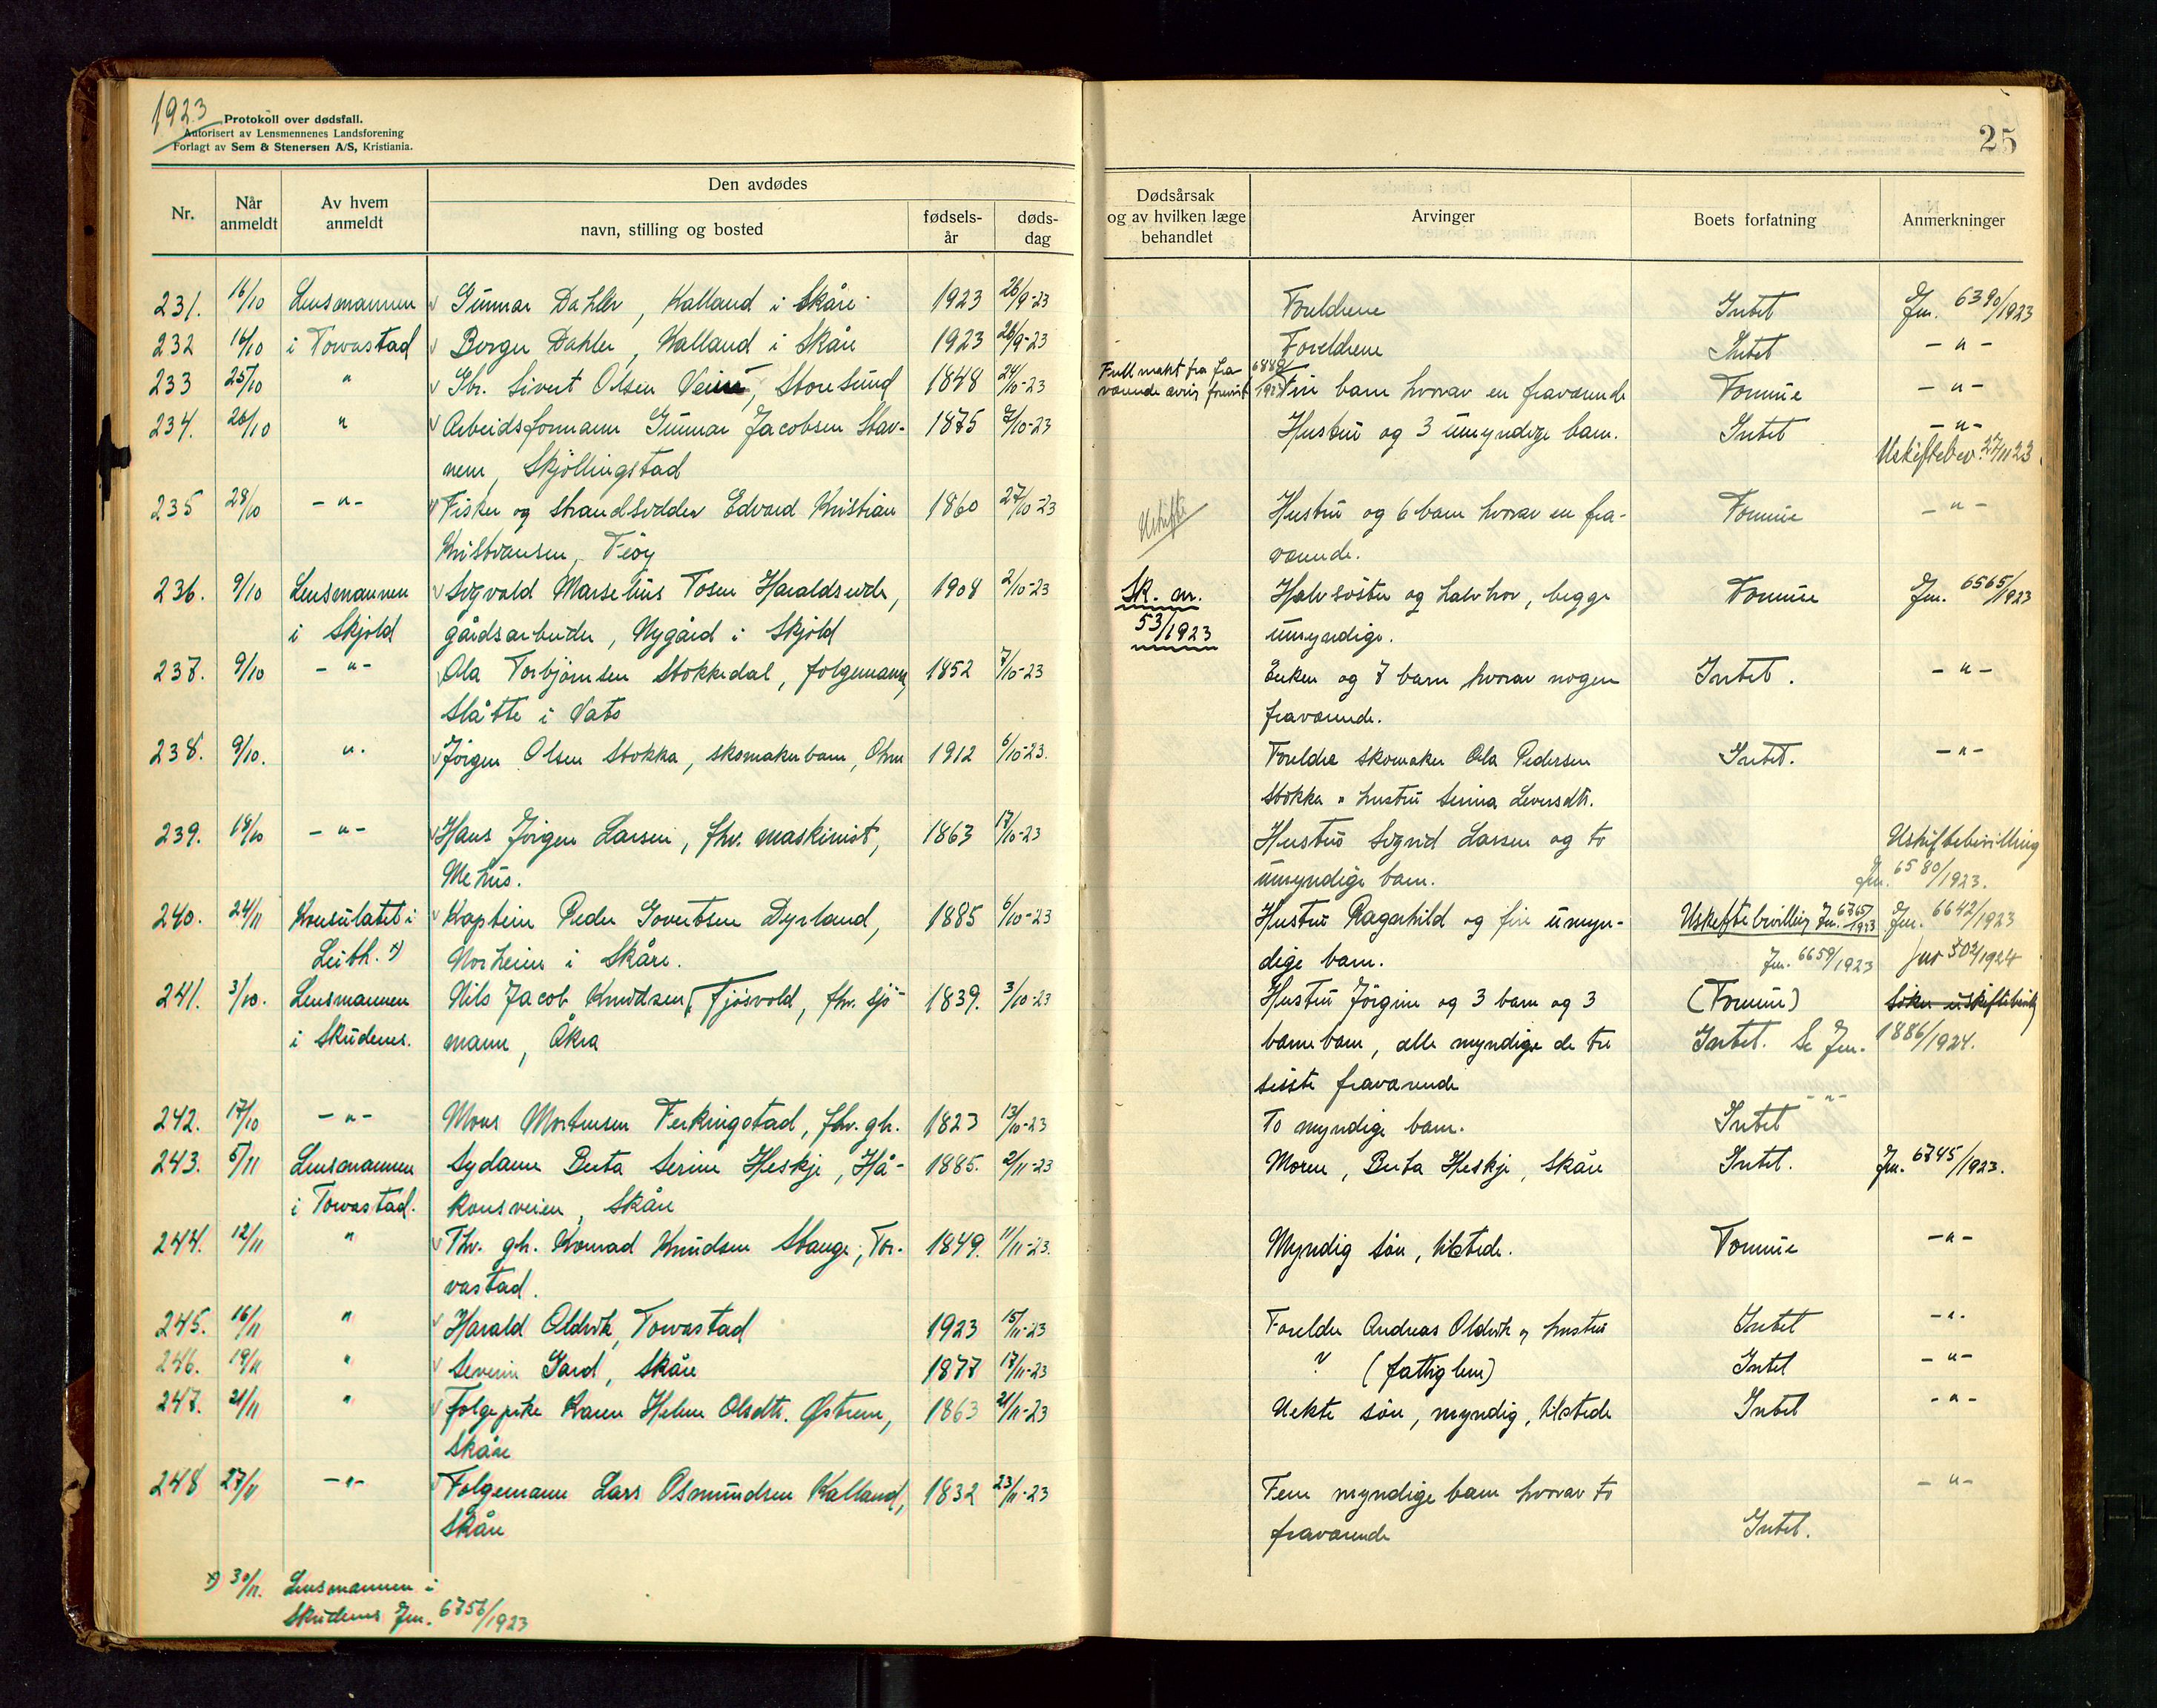 1923
Protokoll over dødsfall.
Autorisert av Lensmennenes Landsforening
Forlagt av Sem & Stenersen A/S, Kristiania.
25
Nr. Når anmeldt Av hvem anmeldt Den avdødes navn, stilling og bosted fødselsår dødsdag Dødsårsak og av hvilken læge behandlet Arvinger Boets forfatning Anmerkninger
231. 16/10 Lensmannen Gunnar Dahler, Kalland i Skåre 1923 26/9-23 Foreldrene Intet Jm. 6390/1923
232 16/10 i Torvastad Borger Dahler, Kalland i Skåre 1923 26/9-23 Foreldrene Intet -"-
233 25/10 " Sivert Olsen Storesund 1848 24/10-23 Fullmakt fra fraværende 6889/1923 barn hvorav en fraværende Formue -"-
234. 26/10 " Arbeidsformann Gunnar Jacobsen Stav- 1875 7/10-23 Hustru og 3 umyndige barn. Intet -"-
nem, Skjöllingstad Uskiftebev. 27/11 23
235 28/10 -"- Fisker og strandsidder Edvard Kristian 1860 27/10-23 Uskifte Hustru og 6 barn hvorav en fra- Formue -"-
Kristiansen, Feöy værende.
236. 9/10 Lensmannen Sigvald Marselius Tosen Haraldseide, 1908 2/10-23 Sk. nr. Halvsöster og halvbror, begge Formue Jm. 6565/1923
i Skjold gårdsarbeider, Nygård i Skjold 53/1923 umyndige.
237. 9/10 -"- Ola Torbjörnsen Stokkedal, folgemann, 1852 7/10-23 Enken og 7 barn hvorav nogen Intet. -"-
Slåtte i Vats fraværende.
238. 9/10. ". Jörgen Olsen Stokka, skomakerbarn, Ölen 1912 6/10-23. Foreldre skomaker Ola Pedersen Intet. -"-
Stokka " hustru Serina Leversdtr.
239. 18/10 -"- Hans Jörgen Larsen, fhv. maskinist, 1863 17/10-23 Hustru Sigrid Larsen og to Uskiftebevilling
Mehus. umyndige barn. Jm. 6580/1923.
240. 24/11 Konsulatet i Kaptein Peder Govertsen Dyrland, 1885 6/10-23 Hustru Ragnhild og fire umyn- Uskiftebevilling Jm. 6765/1923 Jm. 6642/1923
Leith. x) Norheim i Skåre. dige barn. Jm. 6659/1923 Jnr 502/1924
241. 3/10. Lensmannen Nils Jacob Knudsen Fjösvold, fhv. sjö- 1839. 3/10-23 Hustru Jörgine og 3 barn og 3 (Formue) Söker uskiftebevilg
i Skudenes. mann, Åkra barnebarn, alle myndige de tre Intet. Se Jm. 1886/1924.
siste fraværende
242. 17/10 -"- Mons Mortensen Ferkingstad, fhv. gb. 1823 13/10-23 To myndige barn. Intet -"-
243. 5/11 Lensmannen Sydame Berta Serine Heskje, Hå- 1885. 2/11-23 Moren, Berta Heskje, Skåre Intet. Jm. 6745/1923.
i Torvastad. konsveien, Skåre
244. 12/11 " Fhv. gb. Konrad Knudsen Stange, Tor- 1849. 11/11-23. Myndig sön, tilstede. Formue -"-
vastad.
245. 16/11 " Harald Oldvik, Torvastad 1923 15/11-23 Foreldre Andreas Oldvik og hustru Intet -".
246. 19/11 " Severin Gard, Skåre 1877 17/11-23 ? (fattiglem) Intet -"-
247. 21/11 " Folgepike Karen Helene Olsdtr. Østrem, 1863 21/11-23 Uekte sön, myndig, tilstede Intet -"-
Skåre
248 27/11 -"- Folgemann Lars Osmundsen Kalland, 1832 23/11-23 Fem myndige barn hvorav to -"-
Skåre fraværende Intet.
x) 30/11. Lensmannen i
Skudenes Jm. 6756/1923